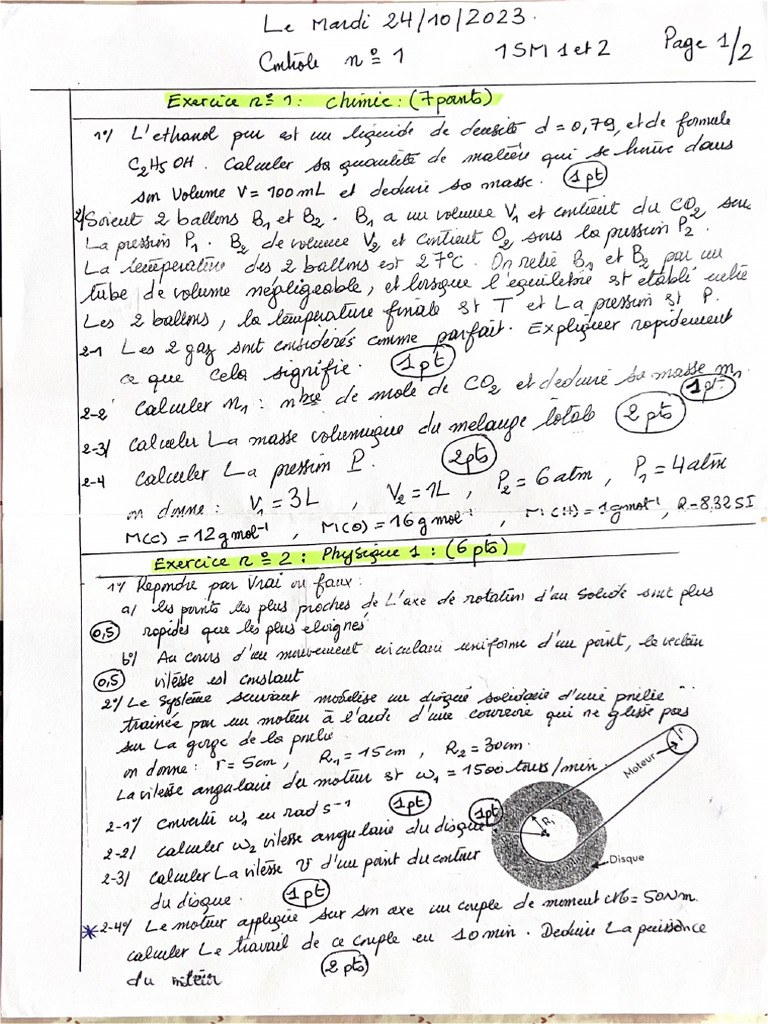 Le Mardi 24/10/2023.
Contrôle n° 1 1SM 1 et 2 Page 1/2
Exercice n° 1 : Chimie : (7 points)
1°/ L'ethanol pur est un liquide de densité d = 0,79, et de formule
C2H5OH. Calculer sa quantité de matière qui se trouve dans
son volume V = 100 mL et deduire sa masse. 1 pt
2/ Soient 2 ballons B1 et B2. B1 a un volume V1 et contient du CO2 sous
La pression P1. B2 de volume V2 et contient O2 sous la pression P2.
La température des 2 ballons est 27°C. On relie B1 et B2 par un
tube de volume négligeable, et lorsque l'équilibre st etabli entre
Les 2 ballons, la température finale st T et La pression st P.
2-1 Les 2 gaz sont considérés comme parfait. Expliquer rapidement
ce que cela signifie. 1 pt
2-2 Calculer n1 : nbre de mole de CO2 et deduire sa masse m1 1 pt
2-3/ calculer La masse volumique du melange totale 2 pts
2-4 calculer La pression P. 2 pts
on donne : V1 = 3L , V2 = 1L , P2 = 6 atm , P1 = 4 atm
M(C) = 12 g mol-1 , M(O) = 16 g mol-1 , M(H) = 1 g mol-1, R = 8.32 SI
Exercice n° 2 : Physique 1 : (6 pts)
1°/ Repondre par Vrai ou faux :
a/ les points les plus proches de L'axe de rotation d'un Solide sont plus
0,5 rapides que les plus eloignés
b°/ Au cours d'un mouvement circulaire uniforme d'un point, le vecteur
0,5 vitesse est constant
2°/ Le Système suivant modélise un disque solidaire d'une poulie
trainée par un moteur à l'aide d'une courroie qui ne glisse pas
sur La gorge de la poulie
on donne : r = 5cm , R1 = 15 cm , R2 = 30cm.
La vitesse angulaire du moteur st ω1 = 1500 tours/min.
2-1°/ convertir ω1 en rad s-1 1pt
2-2/ calculer ω2 vitesse angulaire du disque 1pt
2-3/ calculer La vitesse v d'un point du contour
du disque. 1 pt
r
Moteur
R1
Disque
2-4°/ Le moteur applique sur son axe un couple de moment M = 50Nm.
calculer Le travail de ce couple en 10 min. Deduire La puissance
du moteur 2 pts